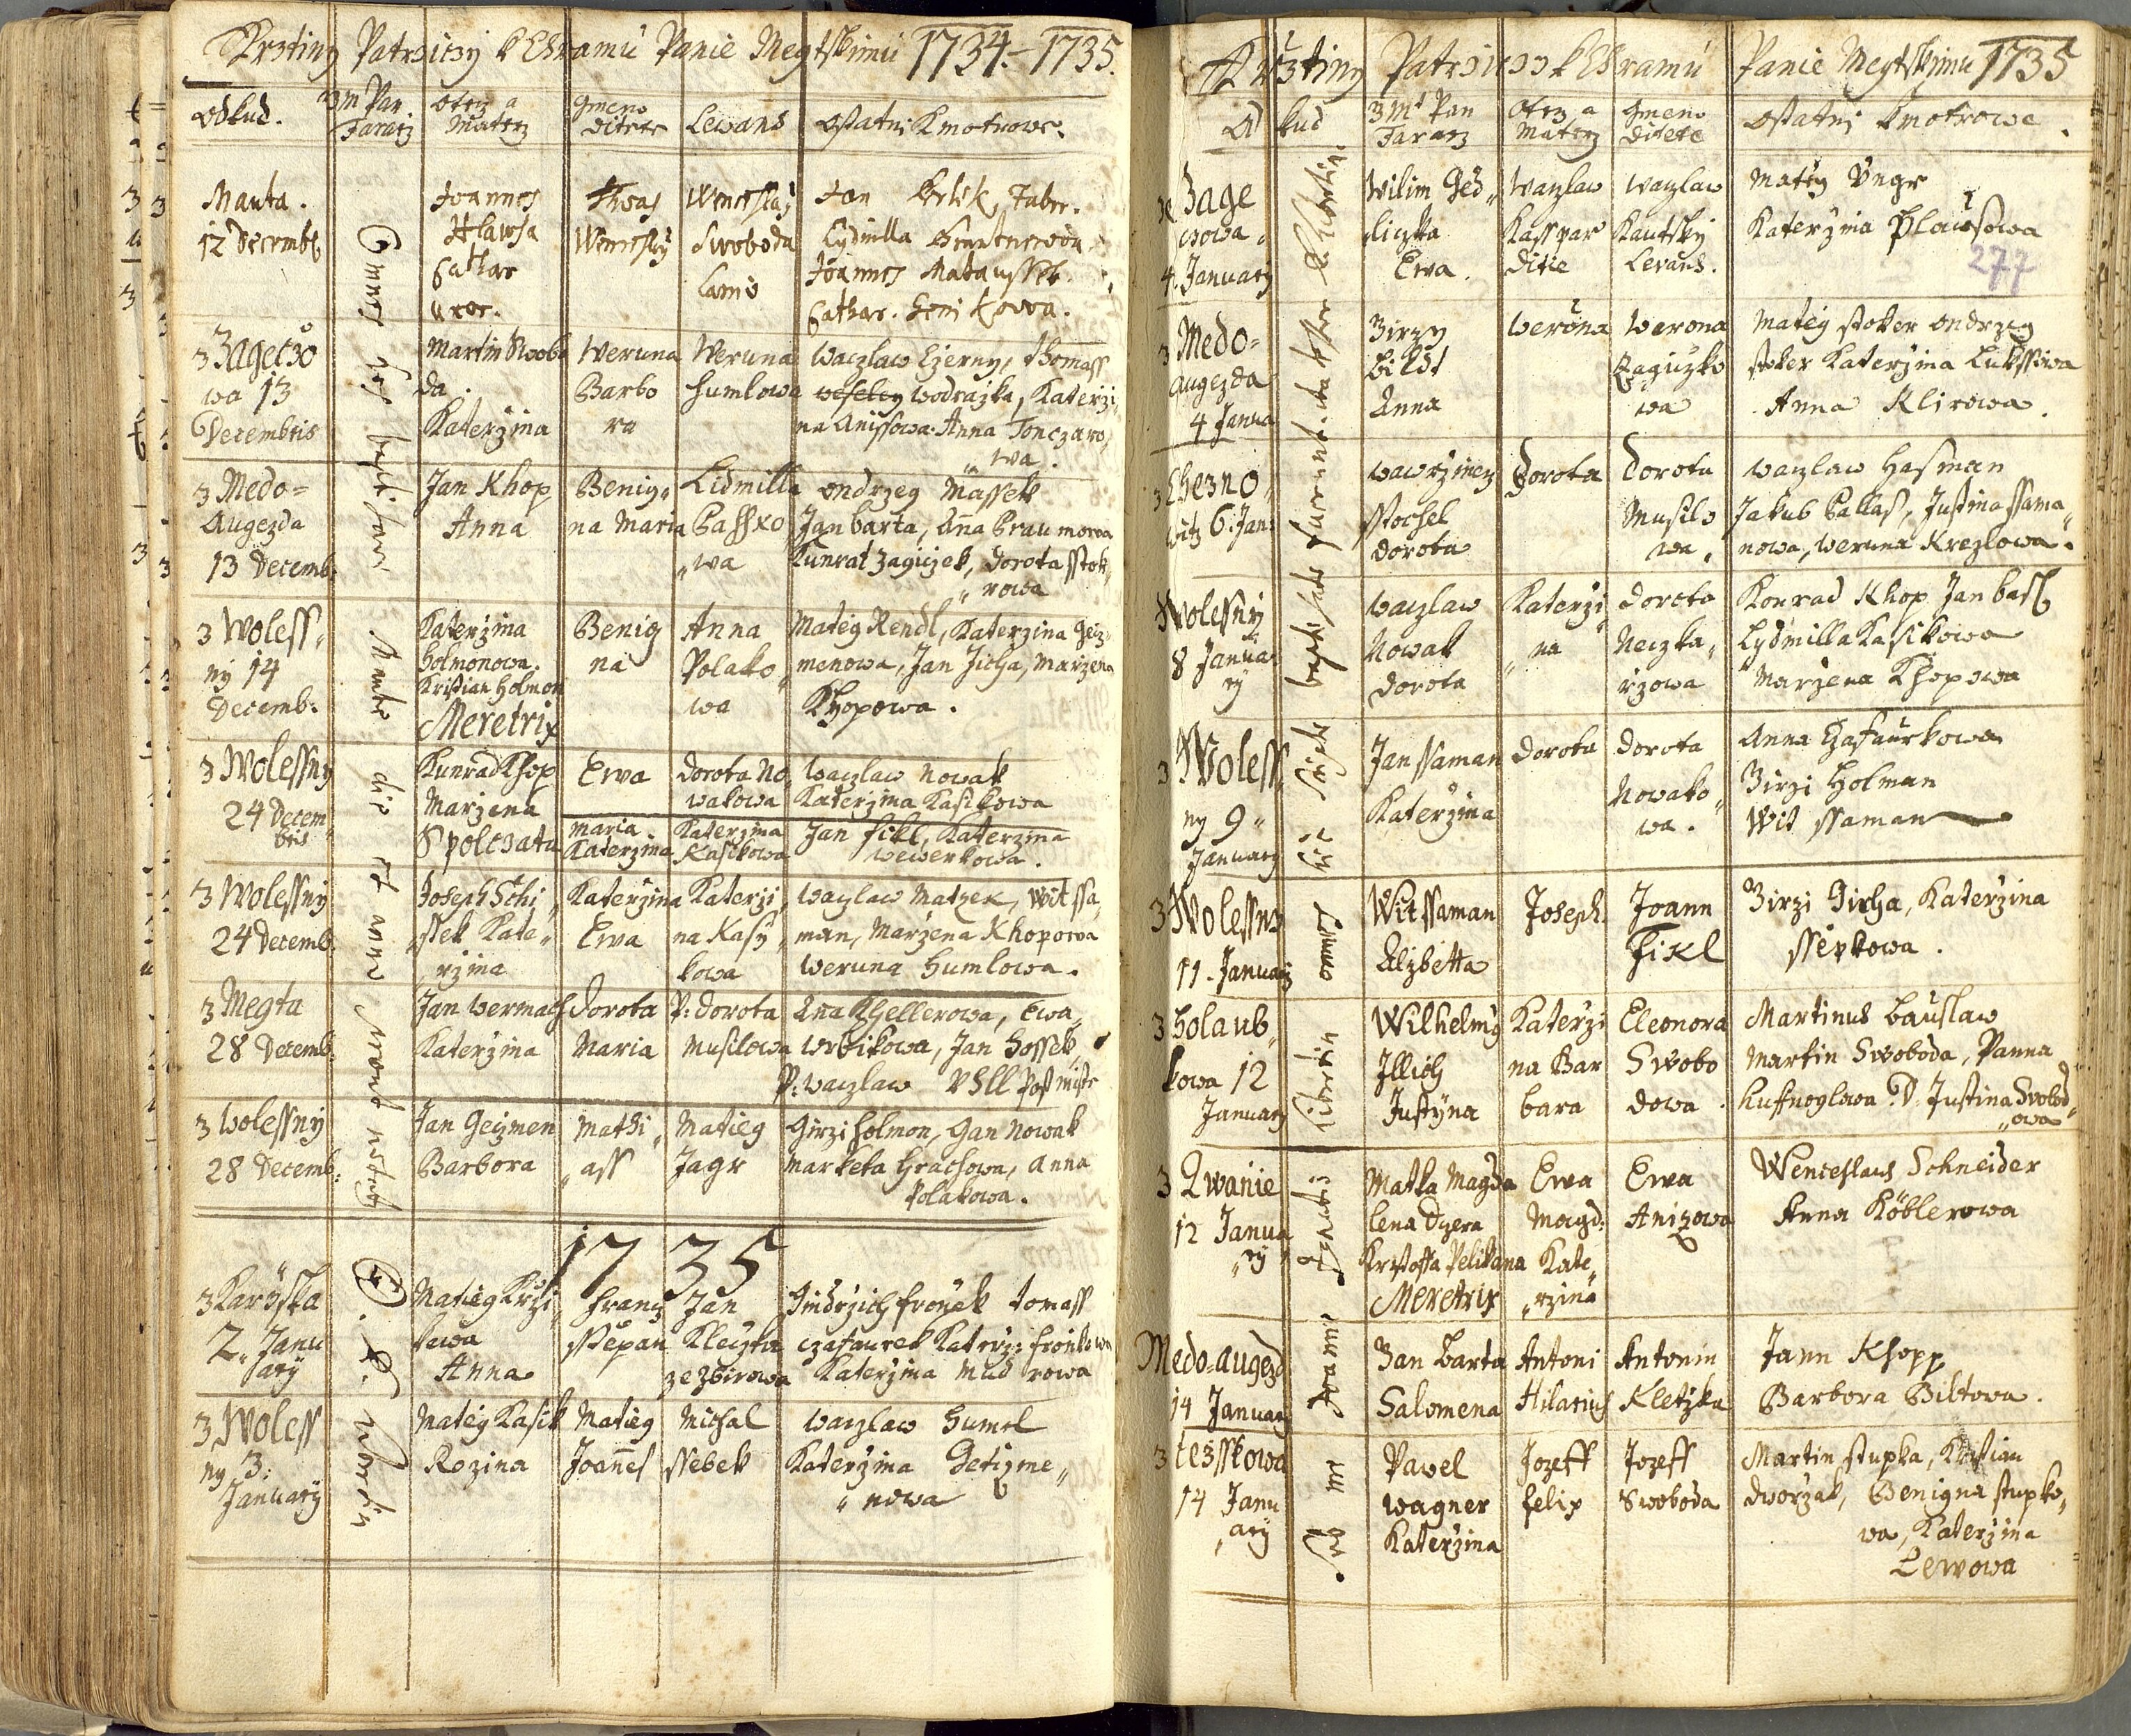 Krztiny Patrziczy k Chramu Panie Megtskimu 1734.-1735.
odkud.
3m Pan Faratz
otecz a Materz
Gmeno ditete
Lewans
ostatni Kmotrowe.
Manta.
12 Decemb.
Joannes
Hlawsa
Cathar
uxor.
Thoas
Wenceslaj
Wenceslaj
Swoboda
Jan Erlik, Faber.
Lydmilla
Joannes Mataussek
Cathar. Henikowa.
3 Zageczo
wa 13
Decembris
Martin Swobo
da.
Katerzina
Weruna
Barbo
ra
Weruna
humlowa
Waczlaw Czerny, Thomass
wesely wodrazka, Katerzi
na Anissowa. Anna Tonczaro
wa.
3 Medo=
Augezda
13 Decemb:
Jan Khop
Anna
Benig
na Maria
Lidmilla
Passko
wa
ondrzeg Massek
Jan barta, Anna Braumorwa
Kunrat Zagiczek, Dorota sstok
rowa
3 Woless
ny 14
Decemb:
Katerzina
holmonowa.
Kristian Holmon
Meretrix
Benig
na
Anna
Polako
wa
Mateg Rendl, Katerzina Geiz
menowa, Jan Jicha, Marzena
Khopowa.
3 Wolessny
24 Decem
bris
Kunrad Khop
Marzena
Spolczata
Ewa
Dorota No
wakowa
Waczlaw Nowak
Katerzina Kasikowa
Maria.
Katerzina
Katerzina
Kasikowa
Jan fikl, Katerzina
wewerkowa.
3 Wolessny
24 Decemb.
Joseph Schi
stek Kate
rzina
Katerzina
Ewa
Katerzi
na Kasy
kowa
Waczlaw Matzek, Wit ssa
man, Marzena Khopowa
Weruna Humlowa.
3 Megta
28 Decemb.
Jan Wermach
Katerzina
Dorota
Maria
P: Dorota
Musilowa
Anna Khellerowa, Ewa
Wrbikowa, Jan Hossek,
P: Waczlaw Vhll Postmistr
3 Wolessny
28 Decemb:
Jan Geizmen
Barbora
Mathi
ass
Matieg
Jagr
Girzi Holmon, Gan Nowak
Marketa Hrachowa, Anna
Polakowa.
1735
3 Karyska
2. Janu
ary
Matieg Krzi
tewa
Anna
Frantz
sstepan
Jan
Kleczka
ze Zbirowa
Jindrzich fronek tomass
czafaurek Katerz: fronkowa
Katerzina Mudrowa
3 Woless
ny 3:
January
Mateg Kasik
Rozina
Matieg
Joannes
Michal
ssebek
Waczlaw Humel
Katerzina Geizme
nowa
Krztiny Patrziczy k Chramu Panie Megtskimu 1735
Odkud
3 Mt Pan Faratz
Otecz a Materz
Gmeno ditete
Ostatni kmotrowe.
ze Zage
czowa.
4. January
Wilim Ged
liczka
Ewa.
Waczlaw
Kasspar
Ditie
Waczlaw
Kautsky
Lewans.
Mateg Ungr
Katerzina Plaussowa
277
3 Medo=
augezda
4 Janua
Zirzy
bildt
Anna
Werona
Werona
Zagiczko
wa
Mateg stoker ondrzeg
stoker Katerzina Lukssowa
Anna Klirowa.
3 Cheznowitz 6. Jan:
Wawrzinecz
sstochel
Dorota
Dorota
Dorota
Musilo
wa.
Waczlaw Hasman
Jakub Pallas, Justina ssama
nowa, Weruna Krezlowa.
Wolessny
8 Janua
ry
Waczlaw
Nowak
Dorota
Katerzi
na
Dorota
Neczka
rzowa
Konrad Khop Jan bass
Lydmilla Kasikowa
Marzena Khopowa
3 Woless
ny 9
January
Jan ssaman
Katerzina
Dorota
Dorota
Nowako
wa.
Anna Czafaurkowa
Zirzi Holman
Wit ssaman
3 Wolessny
11. January
Wit ssaman
Elzbetta
Joseph.
Joann
Fikl
Zirzi Gicha, Katerzina
ssepkowa.
3 Holaub
kowa 12
January
Wilhelmy
Illich
Justyna
Katerzi
na Bar
bara
Eleonora
Swobo
dowa.
Martinus Bauslaw
Martin Swoboda, Panna
Huffnoglowa. P. Justina Swobod
owa
3 Kwanie
12 Janua
ry
Matka Magda
lena Dyera
Kristoffa Pelikana
Meretrix
Ewa
Magd:
Kate
rzina
Ewa
Anizowa
Wenceslaus Schneider
Anna Köblerowa
Medo=augezd
14 January
Jan Barta
Salomena
Antoni
Hilarius
Antonin
Kletzka
Jann Khopp
Barbora Biltowa.
3 tezsskowa
14 Janu
ary
Pavel
wagner
Katerzina
Jozeff
felix
Jozeff
Swoboda
Martin stupka, Kristian
dworzak, Benigna stupko
wa, Katerzina
Lewowa